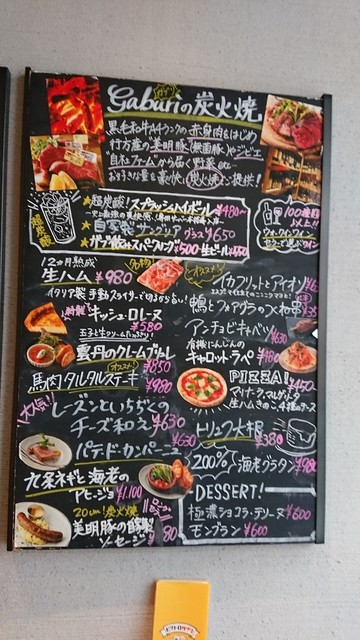 Gaburiの炭火焼
黒毛和牛A4ランクの赤身肉をはじめ
行方産の美明豚(無菌豚)やジビエ
"自社ファーム"から届く野菜 etc
お好きな量を豪快に炭火焼でご提供!
超炭酸
★超炭酸!スプラッシュハイボール ¥480~
★自家製サングリア グラス ¥650
ガブ飲みスパークリング ¥500 生ビール ¥450
100種類以上!!
ウォークインワインセラーで選ぶワイン
12ヵ月熟成
生ハム ¥980
名物
イタリア製手動スライサーで
オススメ!
イカフリットとアイオリ
特製
キッシュ・ロレーヌ
¥580
玉子と生クリームたっぷり!
鴨とフォアグラのつくね
アンチョビキャベツ ¥630
雲丹のクレームブリュレ
¥850
有機にんじんの
キャロットラペ ¥480
オススメ!
馬肉タルタルステーキ ¥980
PIZZA! ¥450~
マリナーラ、マルゲリータ
生ハム、きのこ、4種のチーズ
大人気!
レーズンといちぢくの
チーズ和え ¥630
トリュフ大根
¥380
パテ・ド・カンパーニュ ¥630
200% 海老グラタン ¥980
九条ネギと海老の
アヒージョ ¥1,100
DESSERT!
20cm!炭火焼
美明豚の自家製
ソーセージ
極濃ショコラ・テリーヌ ¥600
モンブラン ¥600